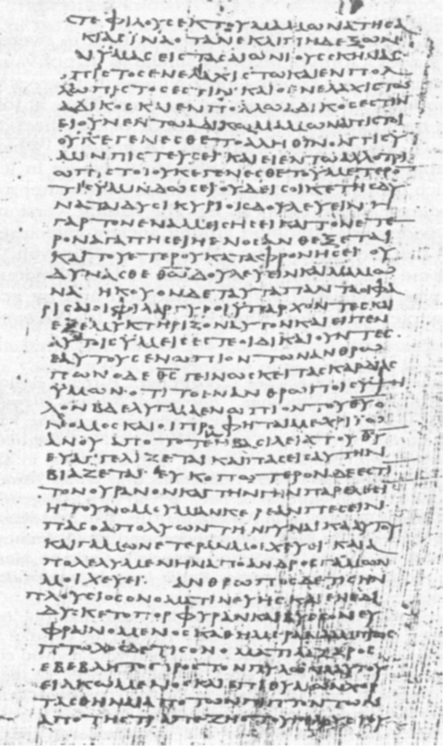 ϹΤΕ ΦΙΛΟΥϹ ΕΚ ΤΟΥ ΜΑΜΩΝΑ ΤΗϹ Α
ΚΙΑϹ ΙΝΑ ΟΤΑΝ ΕΚΛΙΠΗ ΔΕΞΩΝ
ΥΜΑϹ ΕΙϹ ΤΑϹ ΑΙΩΝΙΟΥϹ ϹΚΗΝΑϹ
ΠΙϹΤΟϹ ΕΝ ΕΛΑΧΙϹΤΩ ΚΑΙ ΕΝ ΠΟΛ
ΛΩ ΠΙϹΤΟϹ ΕϹΤΙΝ ΚΑΙ Ο ΕΝ ΕΛΑΧΙϹΤΩ
ΑΔΙΚΟϹ ΚΑΙ ΕΝ ΠΟΛΛΩ ΑΔΙΚΟϹ ΕϹΤΙΝ
ΕΙ ΟΥΝ ΕΝ ΤΩ ΑΔΙΚΩ ΜΑΜΩΝΑ ΠΙϹΤΟΙ
ΟΥΚ ΕΓΕΝΕϹΘΕ ΤΟ ΑΛΗΘΙΝΟΝ ΤΙϹ Υ
ΜΙΝ ΠΙϹΤΕΥϹΕΙ ΚΑΙ ΕΙ ΕΝ ΤΩ ΑΛΛΟΤΡΙ
Ω ΠΙϹΤΟΙ ΟΥΚ ΕΓΕΝΕϹΘΕ ΤΟ ΥΜΕΤΕΡΟ
ΤΙϹ ΥΜΙΝ ΔΩϹΕΙ ΟΥΔΕΙϹ ΟΙΚΕΤΗϹ ΔΥ
ΝΑΤΑΙ ΔΥϹΙ ΚΥΡΙΟΙϹ ΔΟΥΛΕΥΕΙΝ Η
ΓΑΡ ΤΟΝ ΕΝΑ ΜΕΙϹΗϹΕΙ ΚΑΙ ΤΟΝ ΕΤΕ
ΡΟΝ ΑΓΑΠΗϹΕΙ Η ΕΝΟϹ ΑΝΘΕΞΕΤΑΙ
ΚΑΙ ΤΟΥ ΕΤΕΡΟΥ ΚΑΤΑΦΡΟΝΗϹΕΙ ΟΥ
ΔΥΝΑϹΘΕ ΘΩ ΔΟΥΛΕΥΕΙΝ ΚΑΙ ΜΑΜΩ
ΝΑ ΗΚΟΥΟΝ ΔΕ ΤΑΥΤΑ ΠΑΝΤΑ ΟΙ ΦΑ
ΡΙϹΑΙΟΙ ΦΙΛΑΡΓΥΡΟΙ ΥΠΑΡΧΟΝΤΕϹ ΚΑΙ
ΕΞΕΜΥΚΤΗΡΙΖΟΝ ΑΥΤΟΝ ΚΑΙ ΕΙΠΕΝ
ΑΥΤΟΙϹ ΥΜΕΙϹ ΕϹΤΕ ΟΙ ΔΙΚΑΙΟΥΝΤΕϹ
ΕΑΥΤΟΥϹ ΕΝΩΠΙΟΝ ΤΩΝ ΑΝΘΡΩ
ΠΩΝ Ο ΔΕ ΘϹ ΓΕΙΝΩϹΚΕΙ ΤΑϹ ΚΑΡΔΙΑϹ
ΥΜΩΝ ΟΤΙ ΤΟ ΕΝ ΑΝΘΡΩΠΟΙϹ ΥΨΗ
ΛΟΝ ΒΔΕΛΥΓΜΑ ΕΝΩΠΙΟΝ ΤΟΥ ΘΥ Ο
ΝΟΜΟϹ ΚΑΙ ΟΙ ΠΡΟΦΗΤΑΙ ΜΕΧΡΙ ΙΩ
ΑΝΟΥ ΑΠΟ ΤΟΤΕ Η ΒΑϹΙΛΕΙΑ ΤΟΥ ΘΥ
ΕΥΑΓΓΕΛΙΖΕΤΑΙ ΚΑΙ ΠΑϹ ΕΙϹ ΑΥΤΗΝ
ΒΙΑΖΕΤΑΙ ΕΥΚΟΠΩΤΕΡΟΝ ΔΕ ΕϹΤΙ
ΤΟΝ ΟΥΡΑΝΟΝ ΚΑΙ ΤΗΝ ΓΗΝ ΠΑΡΕΛΘΕΙ
Η ΤΟΥ ΝΟΜΟΥ ΜΙΑΝ ΚΕΡΕΑΝ ΠΕϹΕΙΝ
ΠΑϹ Ο ΑΠΟΛΥΩΝ ΤΗΝ ΓΥΝΑΙΚΑ ΑΥΤΟΥ
ΚΑΙ ΓΑΜΩΝ ΕΤΕΡΑΝ ΜΟΙΧΕΥΕΙ ΚΑΙ Ο
ΑΠΟΛΕΛΥΜΕΝΗΝ ΑΠΟ ΑΝΔΡΟϹ ΓΑΜΩΝ
ΜΟΙΧΕΥΕΙ ΑΝΘΡΩΠΟϹ ΔΕ ΤΙϹ ΗΝ
ΠΛΟΥϹΙΟϹ ΟΝΟΜΑΤΙ ΝΕΥΗϹ ΚΑΙ ΕΝΕΔΙ
ΔΥϹΚΕΤΟ ΠΟΡΦΥΡΑΝ ΚΑΙ ΒΥϹϹΟΝ ΕΥ
ΦΡΑΙΝΟΜΕΝΟϹ ΚΑΘ ΗΜΕΡΑΝ ΛΑΜΠΡΩϹ
ΠΤΩΧΟϹ ΔΕ ΤΙϹ ΟΝΟΜΑΤΙ ΛΑΖΑΡΟϹ
ΕΒΕΒΛΗΤΟ ΠΡΟϹ ΤΟΝ ΠΥΛΩΝΑ ΑΥΤΟΥ
ΕΙΛΚΩΜΕΝΟϹ ΚΑΙ ΕΠΙΘΥΜΩΝ ΧΟΡ
ΤΑϹΘΗΝΑΙ ΑΠΟ ΤΩΝ ΠΙΠΤΟΝΤΩΝ
ΑΠΟ ΤΗϹ ΤΡΑΠΕΖΗϹ ΤΟΥ ΠΛΟΥϹΙΟΥ